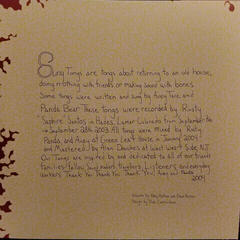 Sung Tongs are songs about returning to an old house,
doing nothing with friends or making sound with bones.
Some songs were written and sung by Avey Tare and
Panda Bear. These Tongs were recorded by Rusty
"Saphire" Santos in Hades, Lamar Colorado from September
→ September 28th 2003. All songs were Mixed by Rusty,
Panda and Avey at Greene Leaf house in January 2004
and Mastered by Alan Douches at West West Side, NJ.
Our Tongs are inspired by and dedicated to all of our travel
families, fellow Song makers, Listeners and everyday
workers. Thank You Thank You Thank You, Avey and Panda
2004